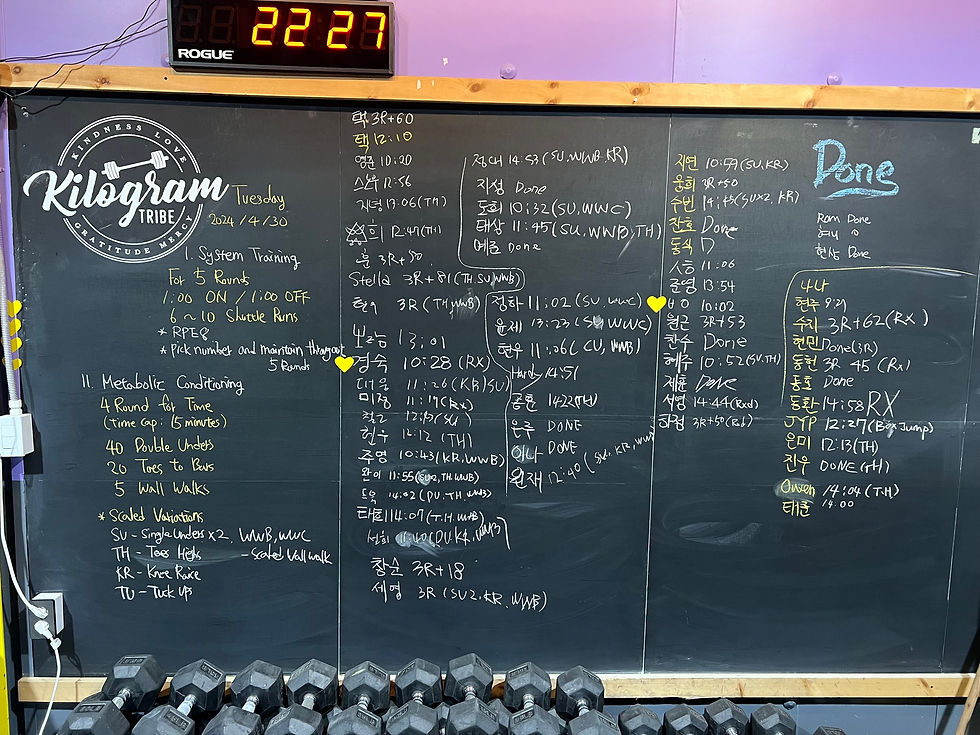 22 27
ROGUE
KINDNESS LOVE
Kilogram
TRIBE
GRATITUDE MERCY
Tuesday
2024/4/30
I. System Training
For 5 Rounds
1:00 ON / 1:00 OFF
6 ~ 10 Shuttle Runs
* RPE8
* Pick number and maintain throughout
5 Rounds
II. Metabolic Conditioning
4 Round for Time
(time cap: 15 minutes)
40 Double Unders
20 Toes to Bars
5 Wall Walks
* Scaled Variations
SU - Single Unders x2, WWB, WWC
TH - Toes Highs - Scaled Wall walk
KR - Knee Raise
TU - Tuck ups
택 3R+60
택 12:10
영준 10:20
12:56
지녕 13:06 (TH)
희 12:47 (TH)
훈 3R+50
Stella 3R+81 (TH.SU,WWB)
3R (TH,WWB)
13:01
경숙 10:28 (RX)
11:26 (KR)SU)
미정 11:19 (Rx)
(SU)
현수 12:12 (TH)
주영 10:43 (KR,WWB)
11:55 (SU2,TH.WWB)
14:02 (DU.TH.WWB)
태희 14:07 (T.H.WWB)
11:40 (DU.KR.WWB)
창순 3R+18
세영 3R (SU2.KR.WWB)
14:53 (SU.WWB.KR)
지성 Done
도희 10:32 (SU,WWC)
태상 11:45 (SU,WWB,TH)
예은 Done
정화 11:02 (SU,WWC)
윤제 13:23 (SU WWC)
현우 11:06 (SU,WWB)
Hardy 14:51
종훈 14:22 (TH)
은주 DONE
이나 DONE
원재 12:40 (SU.KR.WWB)
지연 10:59 (SU,KR)
웅희 3R+50
수빈 14:45 (SUX2, KR)
찬호 Done
동식 D
스흠 11:06
준영 13:54
10:02
원근 3R+53
찬수 Done
혜주 10:52 (SU.TH)
제훈 DONE
서영 14:44 (Rxd)
하정 3R+50 (Rxd)
Done
Rom Done
현상 Done
나나
현주 9:29
수지 3R+62 (RX)
현민 Done (3R)
동현 3R 45 (Rx)
동호 Done
동환 14:58 RX
JYP 12:27 (Box Jump)
은미 12:13 (TH)
진우 DONE (TH)
Owen 14:04 (T.H)
태훈 14:00